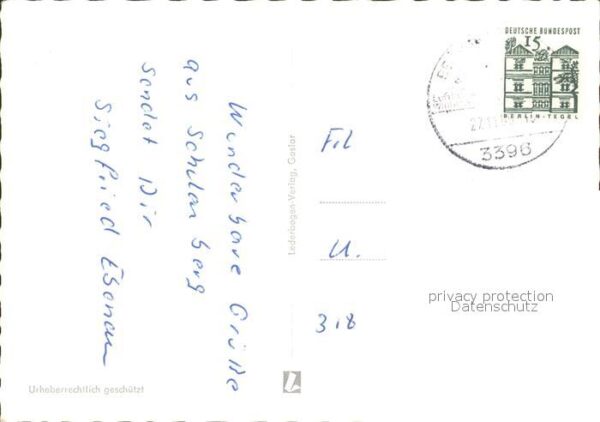 Wunderbare Grüße
aus Schulenberg
Sendet Dir
Siegfried
Urheberrechtlich geschützt
Lederbogen-Verlag, Goslar
DEUTSCHE BUNDESPOST
15
BERLIN-TEGEL
3396
U.
318
privacy protection
Datenschutz